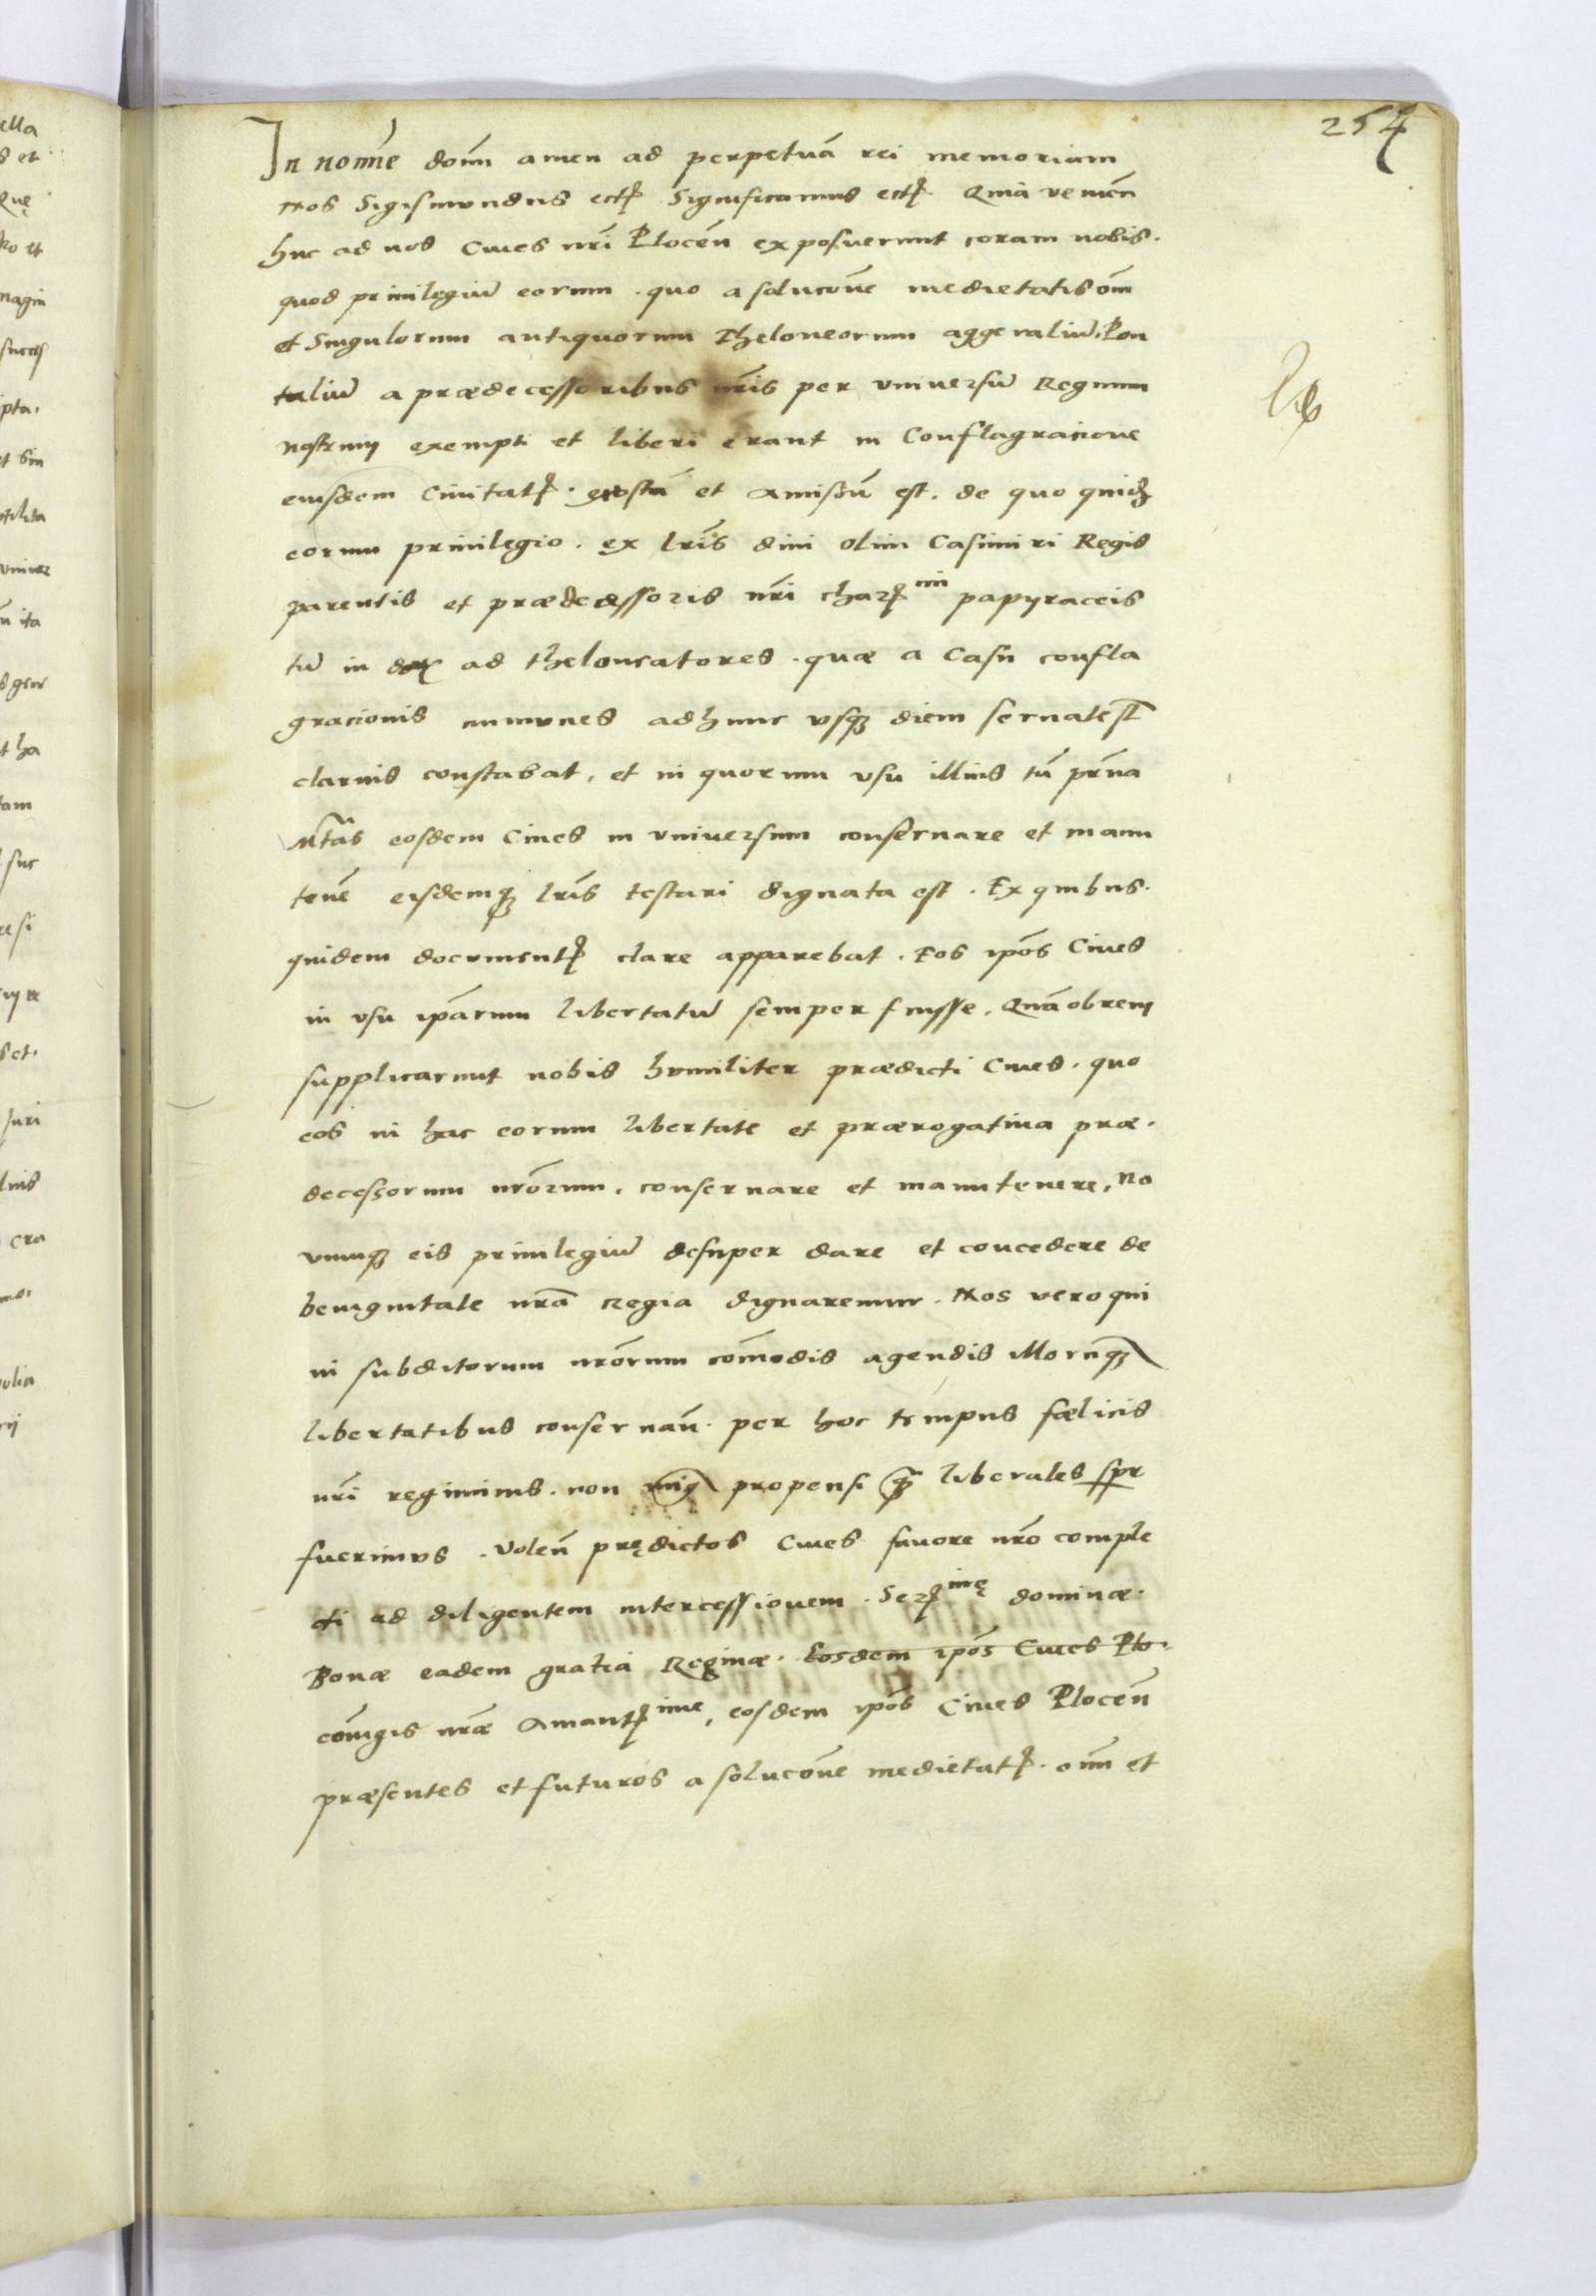 254
In nomine domi amen ad perpetuā rei memoriam
Nos Sigismundus ectꝭ Significamus ectꝭ. Quia venien̄
huc ad nos Cives nr̄i Plocen̄ exposuerunt coram nobis.
quod privilegiū eorum . quo a solucōne medietatis om̄
et Singulorum antiquorum Theloneorum aggeraliū. Pon
taliū a prædecessoribus nr̄is per universū Regnum
nostrum exempti et liberi erant in Conflagracione
eiusdem Civitatꝭ. et amissū est. de quo quidꝫ
eorum privilegio. ex lr̄is divi olim Casimiri Regis
parentis et prædecessoris nr̄i charꝭmi papyraceis
tū in ad theloneatores . quæ a Casu confla
gracionis immunes adhunc usqꝫ diem servate s̄t
clarius constabat, et in quorum usu illius tū pr̄na
Mtās eosdem Cives in universum conservare et manu
tenē eisdemqꝫ lr̄is testari dignata est. Ex quibus.
quidem documentꝭ clare apparebat. Eos ip̄os Cives
in usu ip̄arum libertatū semper fuisse. Quāobrem
supplicarunt nobis humiliter prædicti Cives. quo
eos in hac eorum libertate et prærogativa præ.
decessorum nr̄orum. conservare et manutenere, No
vumqꝫ eis privilegiū desuper dare et concedere de
benignitate nr̄a Regia dignaremur. Nos vero qui
in subditorum nr̄orum com̄odis agendis illorūqꝫ
libertatibus conservan̄. per hoc tempus fœlicis
nr̄i regiminis. non minꝰ propensi qꝫ̄ liberales spr
fuerimus. Volen̄ prędictos Cives favore nr̄o comple
cti ad diligentem intercessionem. Serꝭmę dominæ.
Bonæ eadem gratia Reginæ. Eosdem ip̄os Cives Plo.
coniugis nr̄æ Amantꝭime, eosdem ip̄os Cives Plocen̄
præsentes et futuros a solucōne medietatꝭ. om̄ et